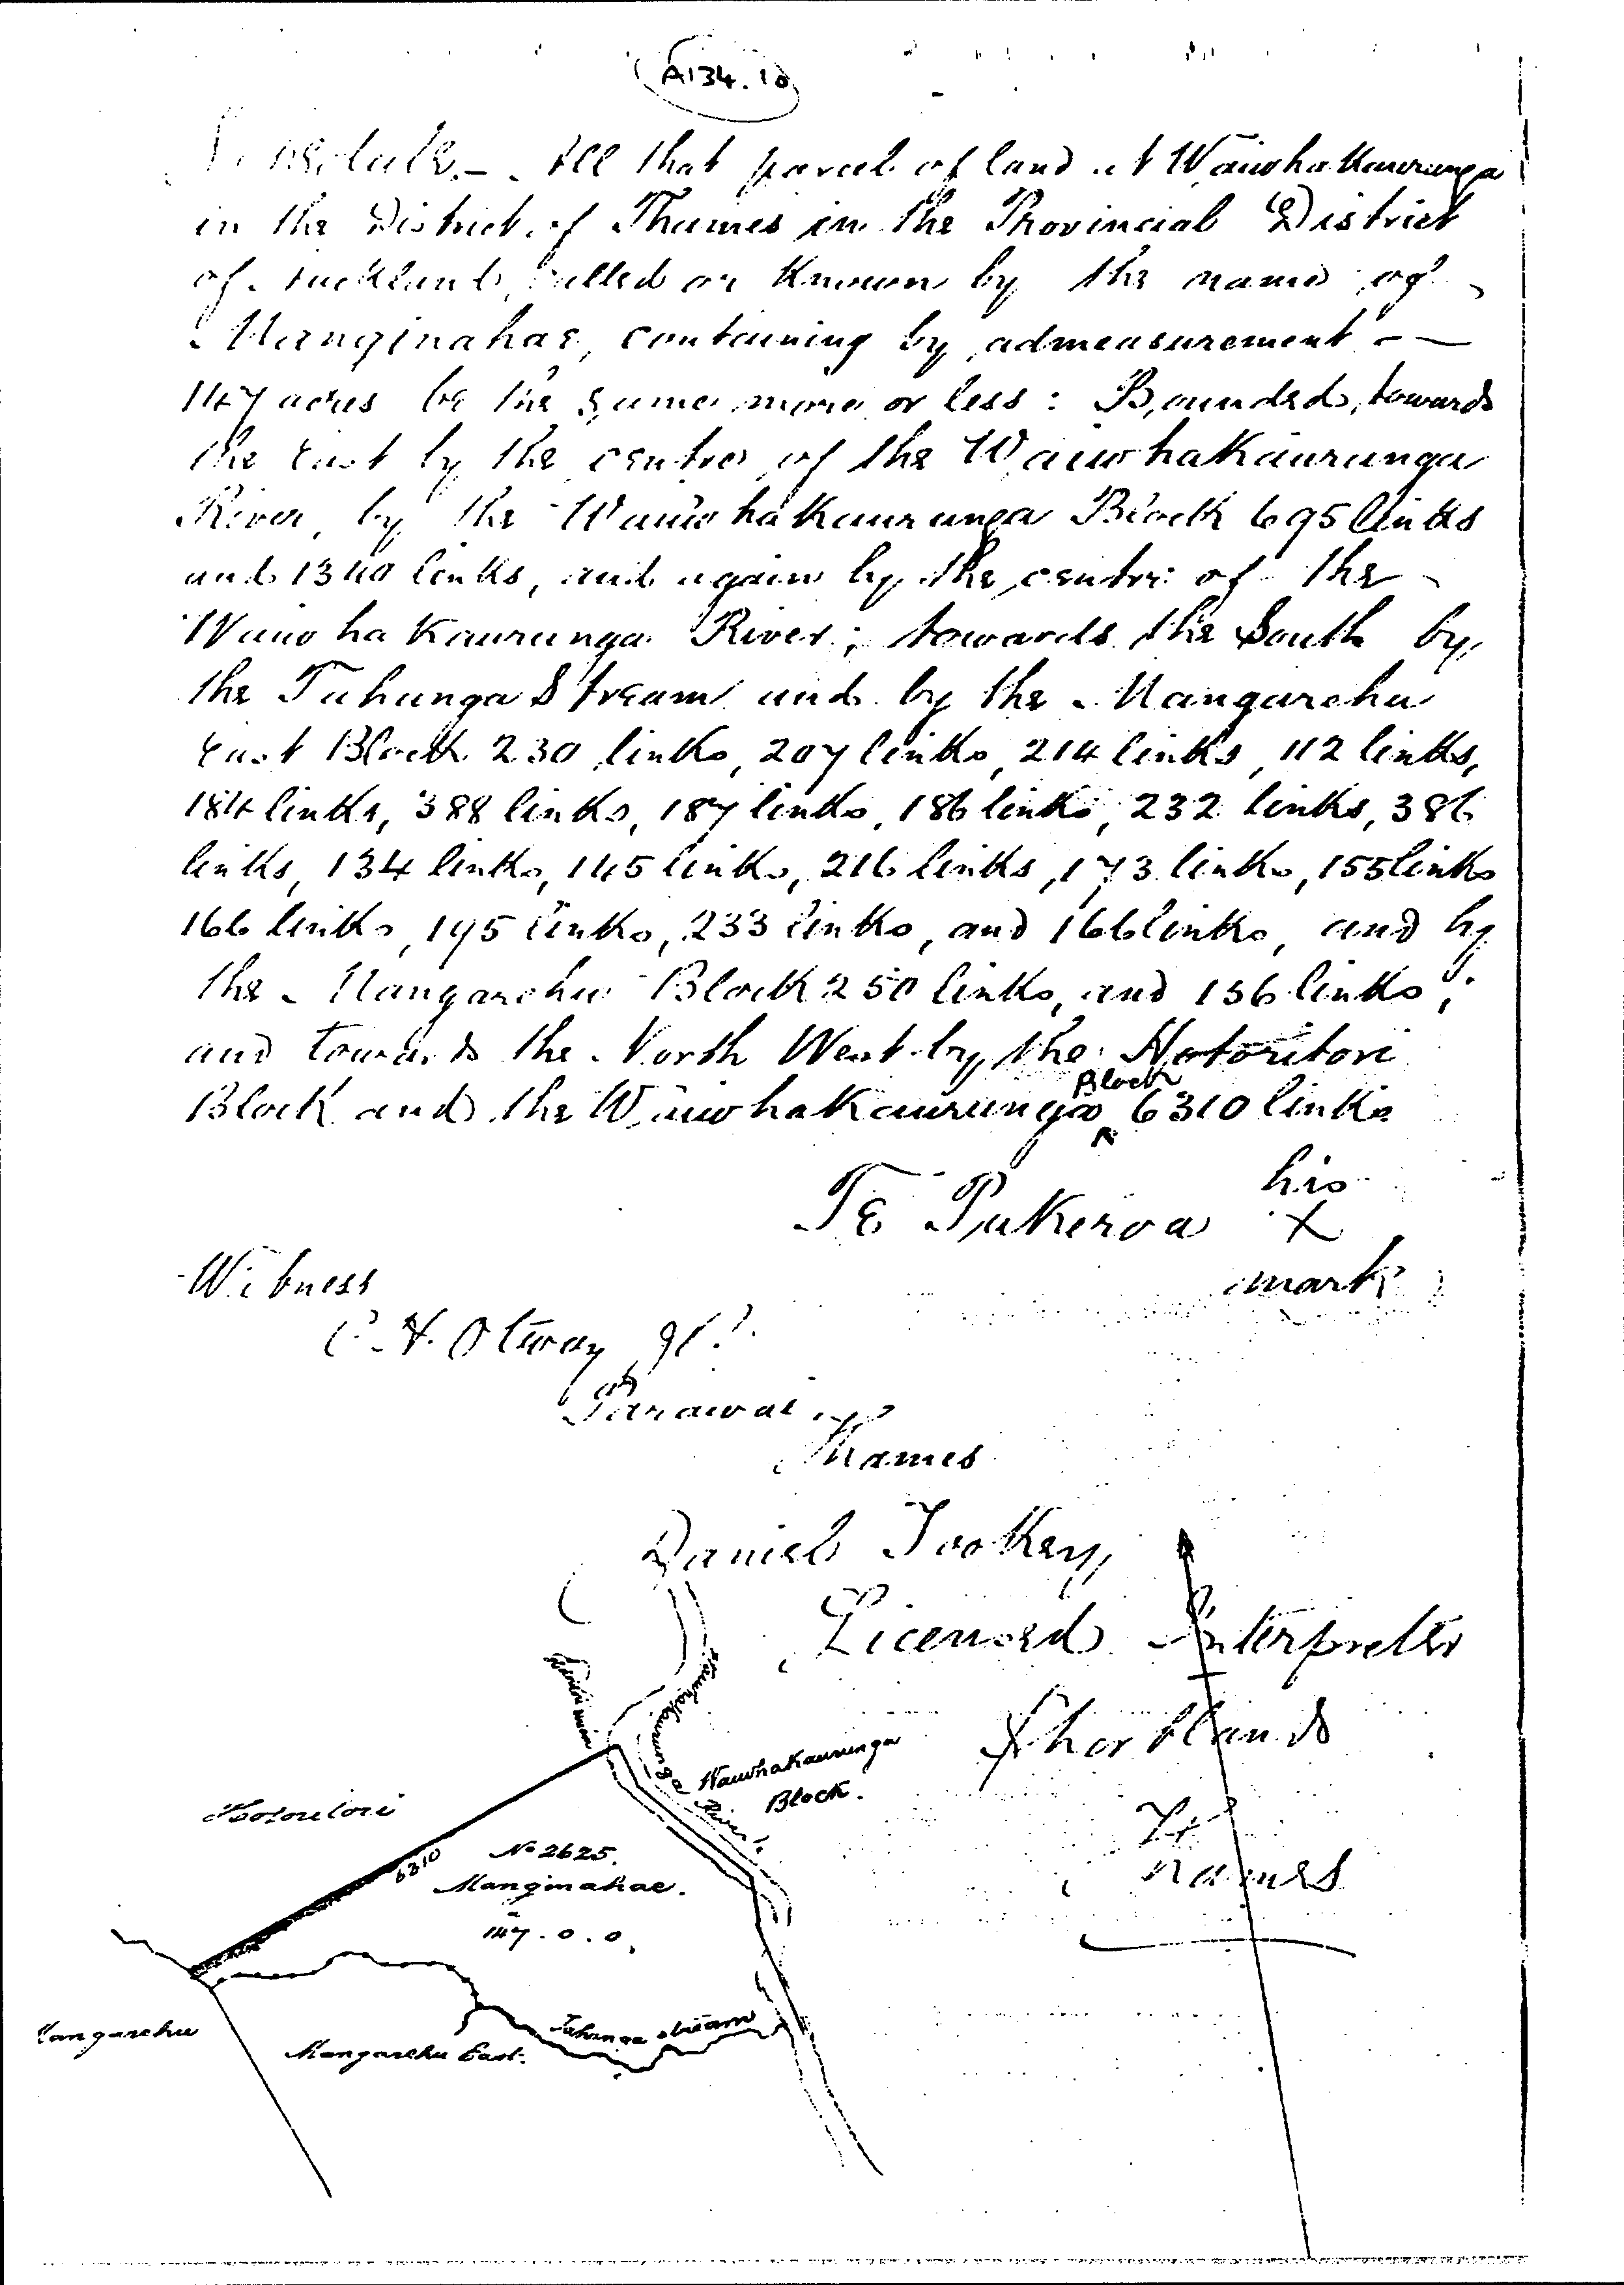 A134.10
Schedule. — All that parcel of land at Waiwhakaurunga
in the District of Thames in the Provincial District
of Auckland called or known by the name of
Manginahae, containing by admeasurement —
147 acres be the same more or less : Bounded towards
the East by the centre of the Waiwhakaurunga
River, by the Waiwhakaurunga Block 695 links
and 1340 links, and again by the centre of the
Waiwhakaurunga River ; towards the South by
the Tahunga Stream and by the Mangarehu
East Block 230 links, 207 links, 214 links, 112 links,
184 links, 388 links, 187 links, 186 links, 232 links, 386
links, 134 links, 145 links, 216 links, 173 links, 155 links
166 links, 195 links, 233 links, and 166 links, and by
the Mangarehu Block 250 links, and 156 links ;
and towards the North West by the Hotoritori
Block and the Waiwhakaurunga Block 6310 links
Te Pukeroa his
x
mark
Witness
C. H. Otway
Parawai
Thames
Daniel Tookey
Licensed Interpreter
Shortland
Thames
Waiwhakaurunga River
Waiwhakaurunga
Block.
Hotoritori
6310
No 2625.
Manginahae.
147 . 0 . 0
Mangarehu
Mangarehu East.
Tahunga Stream